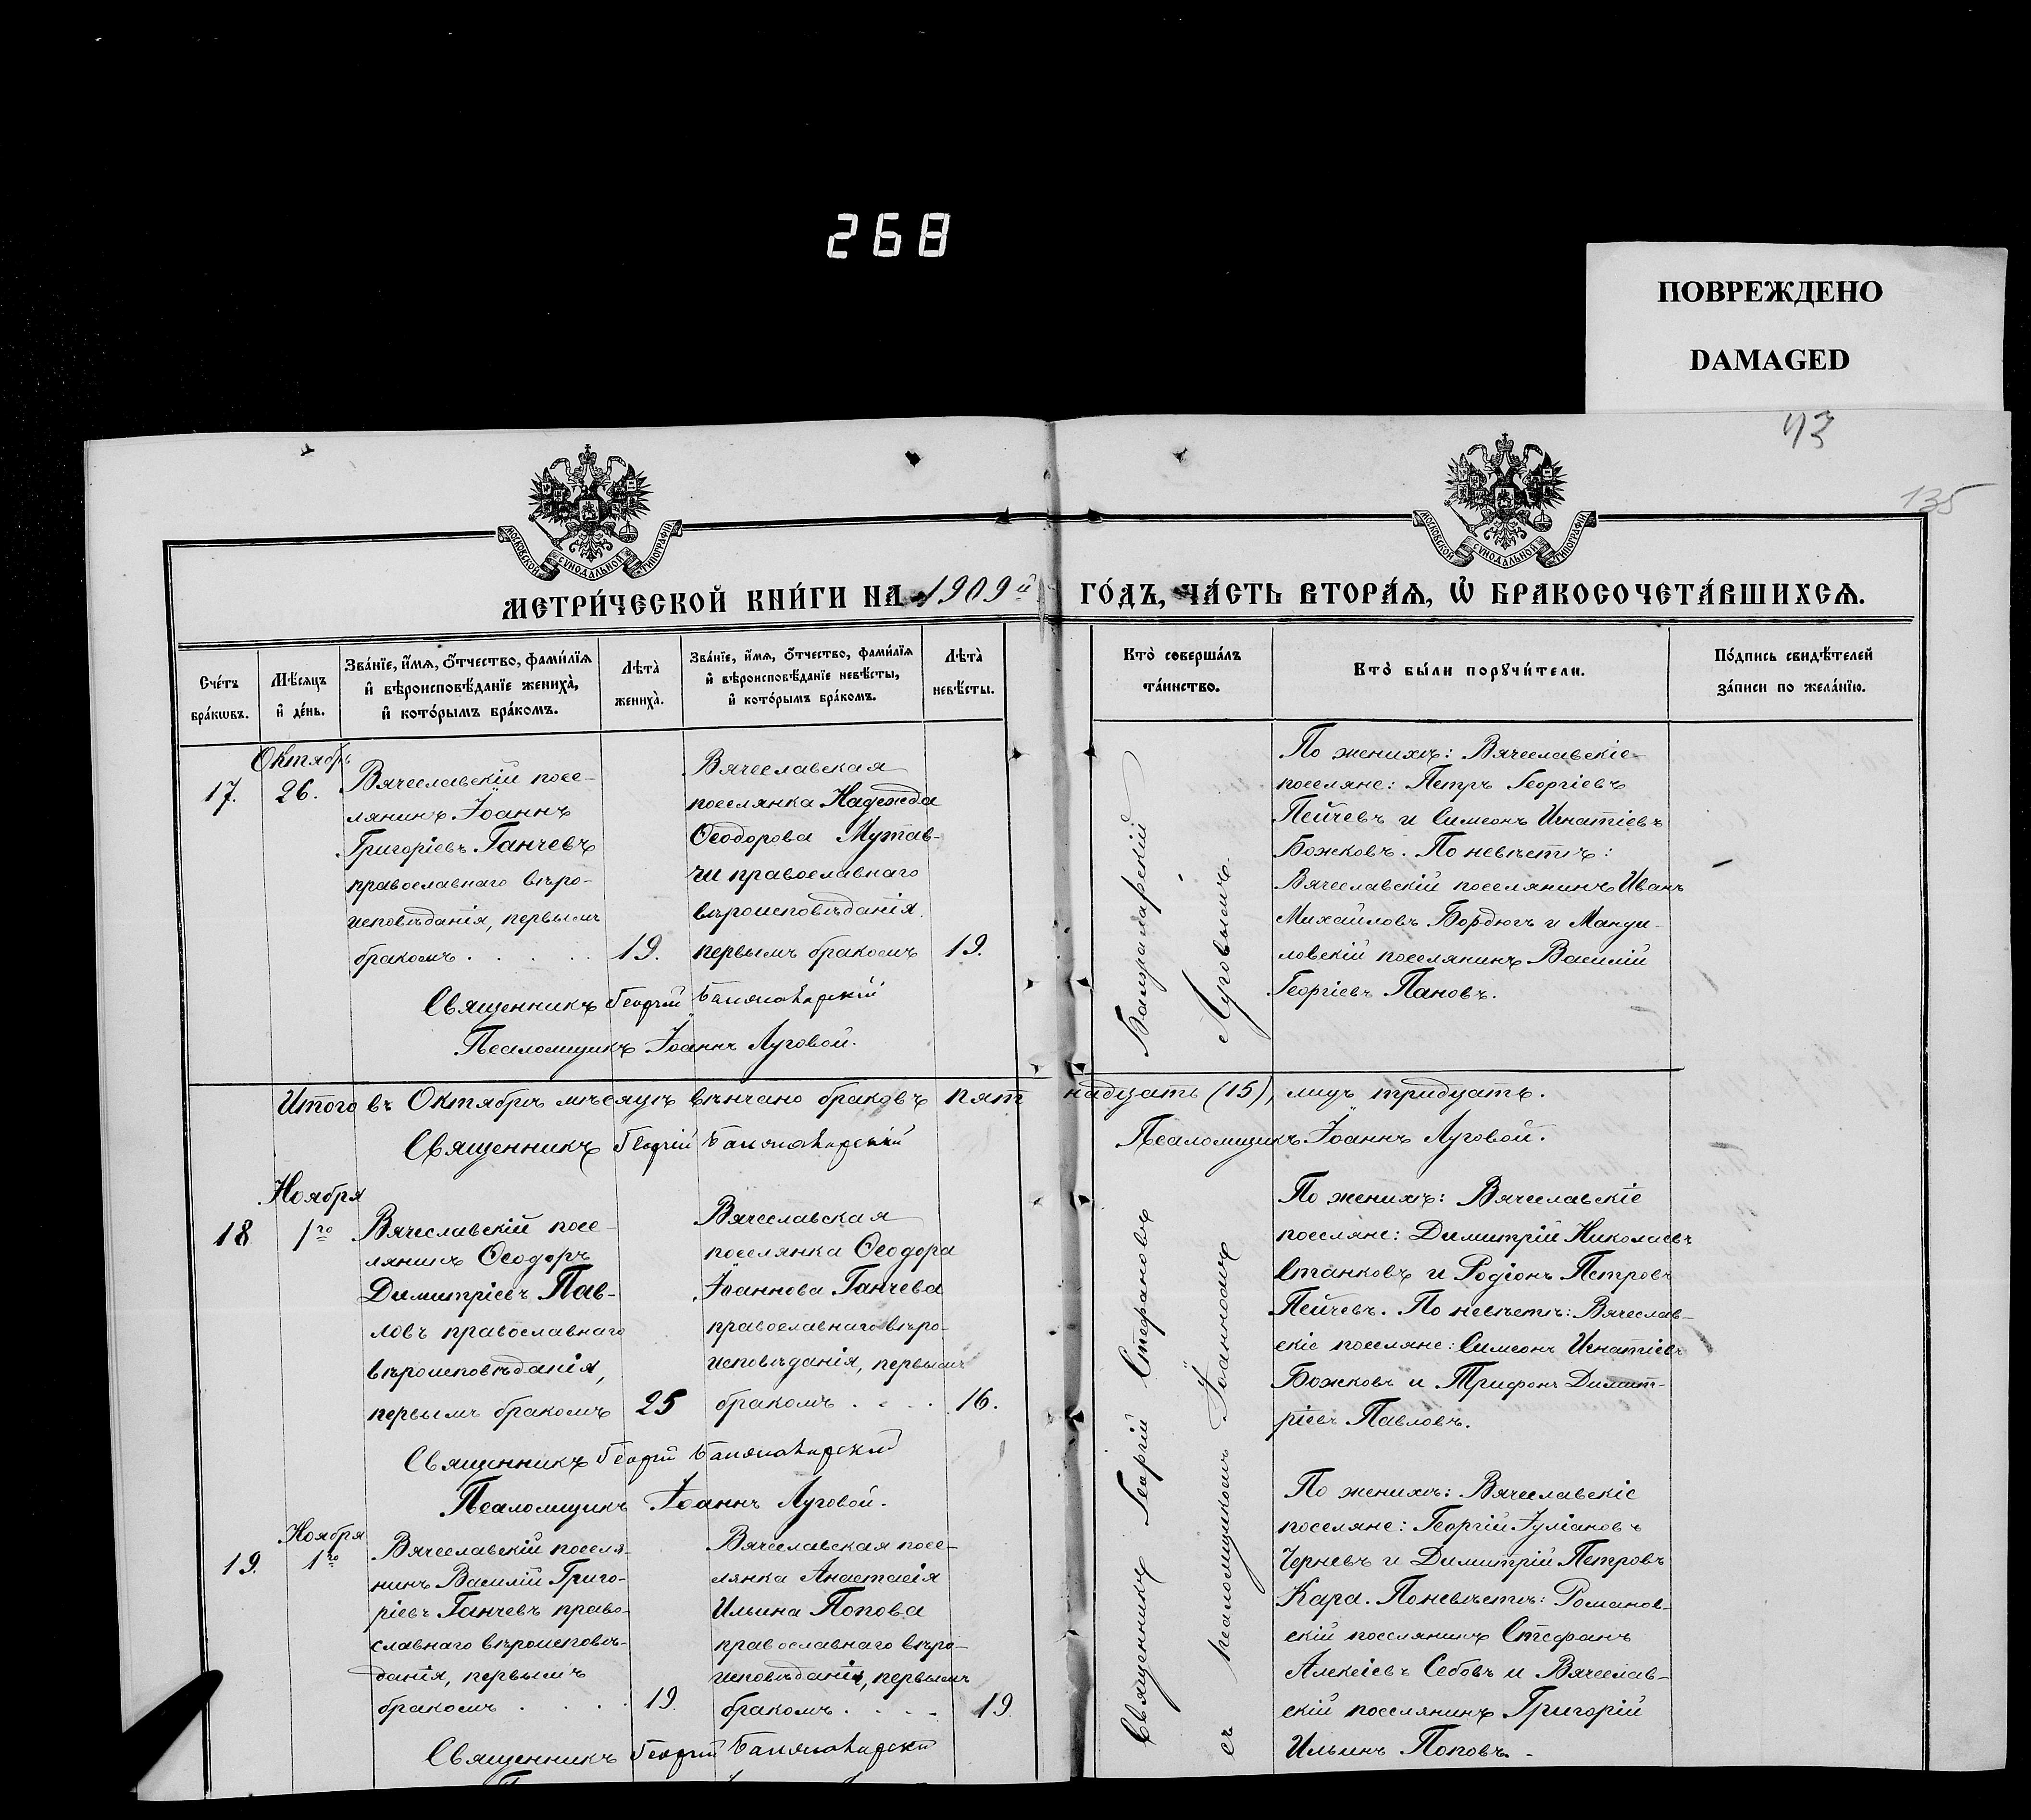 268
ПОВРЕЖДЕНО
DAMAGED
43
135
МОСКОВСКОЙ СУНОДАЛЬНОЙ ТИПОГРАФІИ
МОСКОВСКОЙ СУНОДАЛЬНОЙ ТИПОГРАФІИ
МЕТРИ́ЧЕСКОЙ КНИ́ГИ НА 1909й ГО́ДЪ, ЧА́СТЬ ВТОРА́Ѧ, Ѡ҆ БРАКОСОЧЕТА́ВШИХСѦ.
Сче́тъ бра́кѡвъ.
Мѣ́сѧцъ и҆ де́нь.
Зва́нїе, и҆́мѧ, ѻ҆́тчество, фами́лїѧ
и҆ вѣроисповѣ́данїе жениха̀,
и҆ кото́рымъ бра́комъ.
Лѣта̀ жениха̀.
Зва́нїе, и҆́мѧ, ѻ҆́тчество, фами́лїѧ
и҆ вѣроисповѣ́данїе невѣ́сты,
и҆ кото́рымъ бра́комъ.
Лѣта̀ невѣ́сты.
Кто̀ соверша́лъ
та́инство.
Кто̀ бы́ли порꙋчи́тели.
По́дпись свидѣ́телей
за́писи по жела́нїю.
17.
Октябрь
26.
Вячеславскій посе-
лянинъ Іоаннъ
Григоріевъ Ганчевъ
православнаго вѣро-
исповѣданія, первымъ
бракомъ . . . . .
19.
Вячеславская
поселянка Надежда
Ѳеодорова Мутав-
чи православнаго
вѣроисповѣданія
первымъ бракомъ
19.
По женихѣ: Вячеславскіе
поселяне: Петръ Георгіевъ
Пейчевъ и Симеонъ Игнатіевъ
Божковъ. По невѣстѣ:
Вячеславскій поселянинъ Иванъ
Михайловъ Бордюгъ и Мануй-
ловскій поселянинъ Василій
Георгіевъ Пановъ.
Священникъ Георгій
Псаломщикъ Іоаннъ Луговой.
Итого въ Октябрѣ мѣсяцѣ вѣнчано браковъ пятнадцать (15), лицъ тридцать.
Священникъ Георгій
Псаломщикъ Іоаннъ Луговой.
18
Ноября
1го
Вячеславскій посе-
лянинъ Ѳеодоръ
Димитріевъ Пав-
ловъ православнаго
вѣроисповѣданія,
первымъ бракомъ
25
Вячеславская
поселянка Ѳеодора
Іоаннова Ганчева
православнаго вѣро-
исповѣданія, первымъ
бракомъ . . . .
16.
По женихѣ: Вячеславскіе
поселяне: Димитрій Николаевъ
Станковъ и Родіонъ Петровъ
Пейчевъ. По невѣстѣ: Вячеслав-
скіе поселяне: Симеонъ Игнатіевъ
Божковъ и Трифонъ Димит-
ріевъ Павловъ.
Священникъ Георгій
Псаломщикъ Іоаннъ Луговой.
19.
Ноября
1го
Вячеславскій поселя-
нинъ Василій Григо-
ріевъ Ганчевъ право-
славнаго вѣроисповѣ-
данія, первымъ
бракомъ . . . .
19.
Вячеславская посе-
лянка Анастасія
Ильина Попова
православнаго вѣро-
исповѣданія, первымъ
бракомъ . . . .
19.
По женихѣ: Вячеславскіе
поселяне: Георгій Іуліановъ
Черневъ и Димитрій Петровъ
Кара. По невѣстѣ: Романов-
скій поселянинъ Стефанъ
Алексіевъ Себовъ и Вячеслав-
скій поселянинъ Григорій
Ильинъ Поповъ.
Священникъ Георгій
Священникъ Георгій Стефановъ
съ псаломщикомъ Іоанномъ Луговымъ.